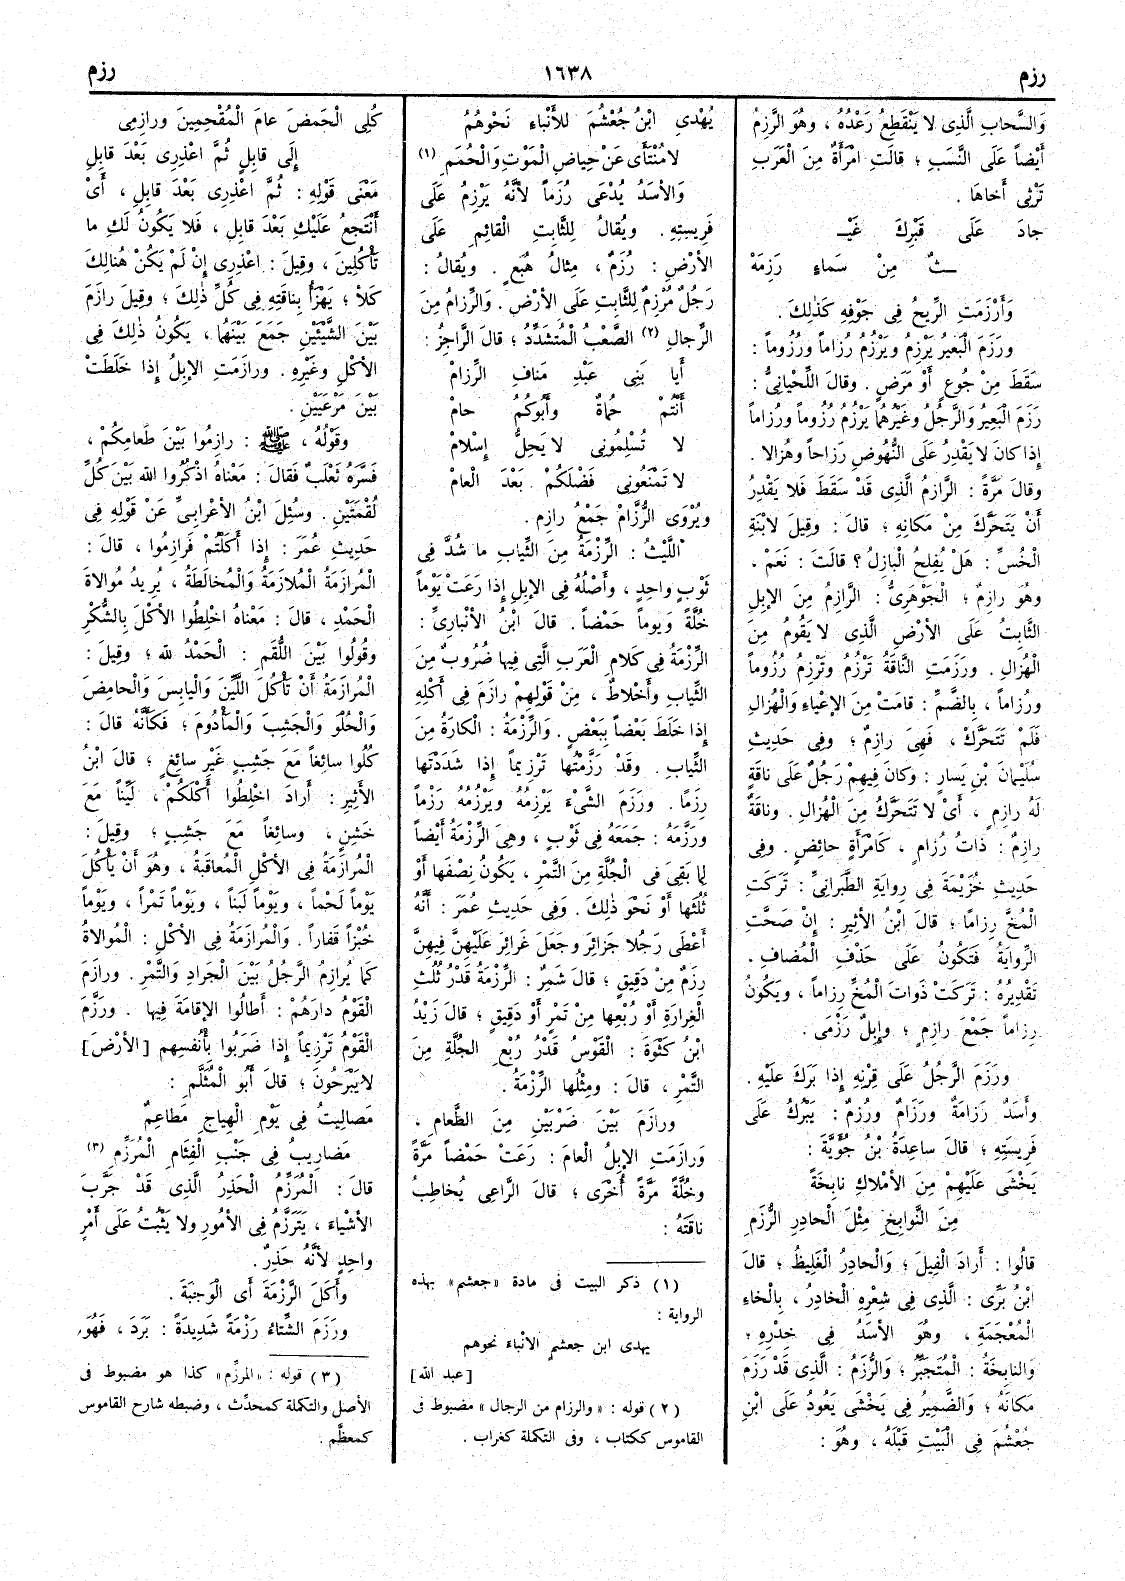 رزم
١٦٣٨
رزم
وَالسَّحابِ الَّذِى لا يَنْقَطِعُ رَعْدُهُ ، وهُوَ الرَّزِمُ
أَيْضاً عَلَى النَّسَبِ ؛ قالَتِ امْرَأَةٌ مِنَ الْعَرَبِ
تَرْثِى أَخاهَا .
جادَ عَلَى قَبْرِكَ غَيْـ
ـثٌ مِنْ سَماءِ رَزِمَهْ
وَأَرْزَمَتِ الرِّيحُ فِى جَوْفِهِ كَذلِكَ .
ورَزَمَ الْبَعِيرُ يَرْزِمُ ويَرْزُمُ رُزاماً ورُزُوماً :
سَقَطَ مِنْ جُوعٍ أَوْ مَرَضٍ . وقالَ اللِّحْيانِىُّ :
رَزَمَ الْبَعِيرُ وَالرَّجُلُ وغَيْرُهُما يَرْزُمُ رُزُوماً ورُزاماً
إِذا كانَ لا يَقْدِرُ عَلَى النُّهُوضِ رَزاحاً وهُزالا .
وقالَ مَرَّةً : الرَّازِمُ الَّذِى قَدْ سَقَطَ فَلا يَقْدِرُ
أَنْ يَتَحَرَّكَ مِنْ مَكانِهِ ؛ قالَ : وقِيلَ لابْنَةِ
الْخُسِّ : هَلْ يُفْلِحُ الْبازِلُ ؟ قالَتْ : نَعَمْ ،
وهُوَ رازِمٌ ؛ الْجَوْهَرِىُّ : الرَّازِمُ مِنَ الإِبِلِ
الثَّابِتُ عَلَى الأَرْضِ الَّذِى لا يَقُومُ مِنَ
الْهُزالِ . ورَزَمَتِ النَّاقَةُ تَرْزُمُ وتَرْزِمُ رُزُوماً
ورُزاماً ، بِالضَّمِّ : قامَتْ مِنَ الإِعْياءِ وَالْهُزالِ
فَلَمْ تَتَحَرَّكْ ، فَهِىَ رازِمٌ ؛ وفِى حَدِيثِ
سُلَيْمانَ بْنِ يَسارٍ : وكانَ فِيهِمْ رَجُلٌ عَلَى ناقَةٍ
لَهُ رازِمٍ ، أَىْ لا تَتَحَرَّكُ مِنَ الْهُزالِ . وناقَةٌ
رازِمٌ : ذاتُ رُزامٍ ، كَامْرَأَةٍ حائِضٍ . وفِى
حَدِيثِ خُزَيْمَةَ فِى رِوايَةِ الطَّبَرانِىِّ : تَرَكَتِ
الْمُخَّ رِزاماً ؛ قالَ ابْنُ الأَثِيرِ : إِنْ صَحَّتِ
الرِّوايَةُ فَتَكُونُ عَلَى حَذْفِ الْمُضافِ .
تَقْدِيرُهُ : تَرَكَتْ ذَواتَ الْمُخِّ رِزاماً ، ويَكُونُ
رِزاماً جَمْعَ رازِمٍ ؛ وإِبِلٌ رَزْمَى .
ورَزَمَ الرَّجُلُ عَلَى قِرْنِهِ إِذا بَرَكَ عَلَيْهِ .
وأَسَدٌ رَزامَةٌ ورَزَامٌ ورُزَمٌ : يَبْرُكُ عَلَى
فَرِيسَتِهِ ؛ قالَ ساعِدَةُ بْنُ جُؤَيَّةَ :
يَخْشَى عَلَيْهِمْ مِنَ الأَمْلاكِ نابِخَةً
مِنَ النَّوابِخِ مِثْلَ الْحادِرِ الرُّزَمِ
قالُوا : أَرادَ الْفِيلَ ؛ وَالْحادِرُ الْغَلِيظُ ؛ قالَ
ابْنُ بَرِّى : الَّذِى فِى شِعْرِهِ الْخادِرُ ، بِالْخاءِ
الْمُعْجَمَةِ ، وهُوَ الأَسَدُ فِى خِدْرِهِ ؛
وَالنابِخَةُ : الْمُتَجَبِّرُ ؛ وَالرُّزَمُ : الَّذِى قَدْ رَزَمَ
مَكانَهُ ؛ وَالضَّمِيرُ فِى يَخْشَى يَعُودُ عَلَى ابْنِ
جُعْشُمَ فِى الْبَيْتِ قَبْلَهُ ، وهُوَ :
يُهْدِى ابْنُ جُعْشُمَ للأَنْباءِ نَحْوَهُمُ
لا مُنْتَأَى عَنْ حِياضِ الْمَوْتِ وَالْحُمَمِ (١)
وَالأَسَدُ يُدْعَى رُزَماً لأَنَّهُ يَرْزِمُ عَلَى
فَرِيسَتِهِ . ويُقالُ لِلثَّابِتِ الْقائِمِ عَلَى
الأَرْضِ : رُزَمٌ ، مِثالُ هُبَعٍ . ويُقالُ :
رَجُلٌ مُرْزِمٌ لِلثَّابِتِ عَلَى الأَرْضِ . وَالرِّزامُ مِنَ
الرِّجالِ (٢) الصَّعْبُ الْمُتَشَدِّدُ ؛ قالَ الرَّاجِزُ :
أَيا بَنِى عَبْدِ مَنافِ الرِّزامْ
أَنْتُمْ حُماةٌ وأَبُوكُمْ حامْ
لا تُسْلِمُونِى لا يَحِلُّ إِسْلامْ
لا تَمْنَعُونِى فَضْلَكُمْ بَعْدَ العامْ
ويُرْوَى الرُّزَّامْ جَمْعُ رازِمٍ .
اللَّيْثُ : الرِّزْمَةُ مِنَ الثِّيابِ ما شُدَّ فِى
ثَوْبٍ واحِدٍ ، وأَصْلُهُ فِى الإِبِلِ إِذا رَعَتْ يَوْماً
خُلَّةً ويَوماً حَمْضاً . قالَ ابْنُ الأَنْبارِىِّ :
الرِّزْمَةُ فِى كَلامِ الْعَرَبِ الَّتِى فِيها ضُرُوبٌ مِنَ
الثِّيابِ وأَخْلاطٌ ، مِنْ قَوْلِهِمْ رازَمَ فِى أَكْلِهِ
إِذا خَلَطَ بَعْضاً بِبَعْضٍ . وَالرِّزْمَةُ : الْكارَةُ مِنَ
الثِّيابِ . وقَدْ رَزَّمْتُها تَرْزِيماً إِذا شَدَدْتَها
رِزَماً . ورَزَمَ الشَّىْءَ يَرْزِمُهُ ويَرْزُمُهُ رَزْماً
ورَزَّمَهُ : جَمَعَهُ فِى ثَوْبٍ ، وهِىَ الرِّزْمَةُ أَيْضاً
لِما بَقِىَ فى الْجُلَّةِ مِنَ التَّمْرِ ، يَكُونُ نِصْفَها أَوْ
ثُلُثَها أَوْ نَحْوَ ذلِكَ . وَفِى حَدِيثِ عُمَرَ : أَنَّهُ
أَعْطَى رَجُلا جَزائِرَ وجَعَلَ غَرائِرَ عَلَيْهِنَّ فِيهِنَّ
رِزَمٌ مِنْ دَقِيقٍ ؛ قالَ شَمِرٌ : الرِّزْمَةُ قَدْرُ ثُلُثِ
الْغِرارَةِ أَوْ رُبْعِها مِنْ تَمْرٍ أَوْ دَقِيقٍ ؛ قالَ زَيْدُ
ابْنُ كَثْوَةَ : الْقَوْسُ قَدْرُ رُبْعِ الْجُلَّةِ مِنَ
التَّمْرِ ، قالَ : ومِثْلُها الرِّزْمَةُ .
ورازَمَ بَيْنَ ضَرْبَيْنِ مِنَ الطَّعامِ ،
وَرازَمَتِ الإِبِلُ الْعامَ : رَعَتْ حَمْضاً مَرَّةً
وخُلَّةً مَرَّةً أُخْرَى ؛ قالَ الرَّاعِى يُخاطِبُ
ناقَتَهُ :
(١) ذكر البيت فى مادة «جعشم» بهذه
الرواية :
يهدى ابن جعشم الأنباء نحوهم
[عبد الله]
(٢) قوله : «والرزام من الرجال» مضبوط فى
القاموس ككتاب ، وفى التكملة كغراب .
كُلِى الْحَمْضَ عامَ الْمُقْحِمِينَ ورازِمِى
إِلَى قابِلٍ ثُمَّ اعْذِرِى بَعْدَ قابِلِ
مَعْنَى قَوْلِهِ : ثُمَّ اعْذِرِى بَعْدَ قابِلِ ، أَىْ
أَنْتَجِعُ عَلَيْكِ بَعْدَ قابِلٍ ، فَلا يَكُونُ لَكِ ما
تَأْكُلِينَ ، وقِيلَ : اعْذِرِى إِنْ لَمْ يَكُنْ هُنالِكَ
كَلأٌ ؛ يَهْزَأُ بِناقَتِهِ فِى كُلِّ ذلِكَ ؛ وقِيلَ رازَمَ
بَيْنَ الشَّيْئَيْنِ جَمَعَ بَيْنَهُما ، يَكُونُ ذلِكَ فِى
الأَكْلِ وغَيْرِهِ . ورازَمَتِ الإِبِلُ إِذا خَلَطَتْ
بَيْنَ مَرْعَيَيْنِ .
وقَوْلُهُ ، ﷺ : رازِمُوا بَيْنَ طَعامِكُمْ ،
فَسَّرَهُ ثَعْلَبٌ فَقالَ : مَعْناهُ اذْكُرُوا الله بَيْنَ كُلِّ
لُقْمَتَيْنِ . وسُئِلَ ابْنُ الأَعْرابِىِّ عَنْ قَوْلِهِ فِى
حَدِيثِ عُمَرَ : إِذا أَكَلْتُمْ فَرازِمُوا ، قالَ :
الْمُرازَمَةُ الْمُلازَمَةُ وَالْمُخالَطَةُ ، يُرِيدُ مُوالاةَ
الْحَمْدِ ، قالَ : مَعْناهُ اخْلِطُوا الأَكْلَ بِالشُّكْرِ
وقُولُوا بَيْنَ اللُّقَمِ : الْحَمْدُ للهِ ؛ وقِيلَ :
الْمُرازَمَةُ أَنْ تَأْكُلَ اللَّيِّنَ وَالْيابِسَ وَالْحامِضَ
وَالْحُلْوَ وَالْجَشِبَ وَالْمَأْدُومَ ؛ فَكَأَنَّهُ قالَ :
كُلُوا سائِغاً مَعَ جَشِبٍ غَيْرِ سائِغٍ ؛ قالَ ابْنُ
الأَثِيرِ : أَرادَ اخْلِطُوا أَكْلَكُمْ ، لَيِّناً مَعَ
خَشِنٍ ، وسائِغاً مَعَ جَشِبٍ ؛ وقِيلَ :
الْمُرازَمَةُ فِى الأَكْلِ الْمُعاقَبَةُ ، وهُوَ أَنْ يَأْكُلَ
يَوْماً لَحْماً ، ويَوْماً لَبَناً ، ويَوْماً تَمْراً ، ويَوْماً
خُبْزاً قَفاراً . وَالْمُرازَمَةُ فِى الأَكْلِ : الْمُوالاةُ
كَما يُرازِمُ الرَّجُلُ بَيْنَ الْجَرادِ وَالتَّمْرِ . ورازَمَ
الْقَوْمُ دارَهُمْ : أَطالُوا الإِقامَةَ فِيها . ورَزَّمَ
الْقَوْمُ تَرْزِيماً إِذا ضَرَبُوا بِأَنْفُسِهِم [الأَرْضَ]
لا يَبْرَحُونَ ؛ قالَ أَبُو الْمُثَلَّمِ :
مَصالِيتُ فِى يَوْمِ الْهِياجِ مَطاعِمٌ
مَضاريبُ فِى جَنْبِ الْفِئامِ الْمُرَزِّمِ (٣)
قالَ : الْمُرَزِّمُ الْحَذِرُ الَّذِى قَدْ جَرَّبَ
الأَشْياءَ ، يَتَرَزَّمُ فِى الأُمُورِ ولا يَثْبُتُ عَلَى أَمْرٍ
واحِدٍ لأَنَّهُ حَذِرٌ .
وأَكَلَ الرَّزْمَةَ أَىِ الْوَجْبَةَ .
ورَزَمَ الشِّتاءُ رَزْمَةً شَدِيدَةً : بَرَدَ ، فَهُوَ
(٣) قوله : «المرزِّم» كذا هو مضبوط فى
الأصل والتكملة كمحدِّث ، وضبطه شارح القاموس
كمعظَّم .